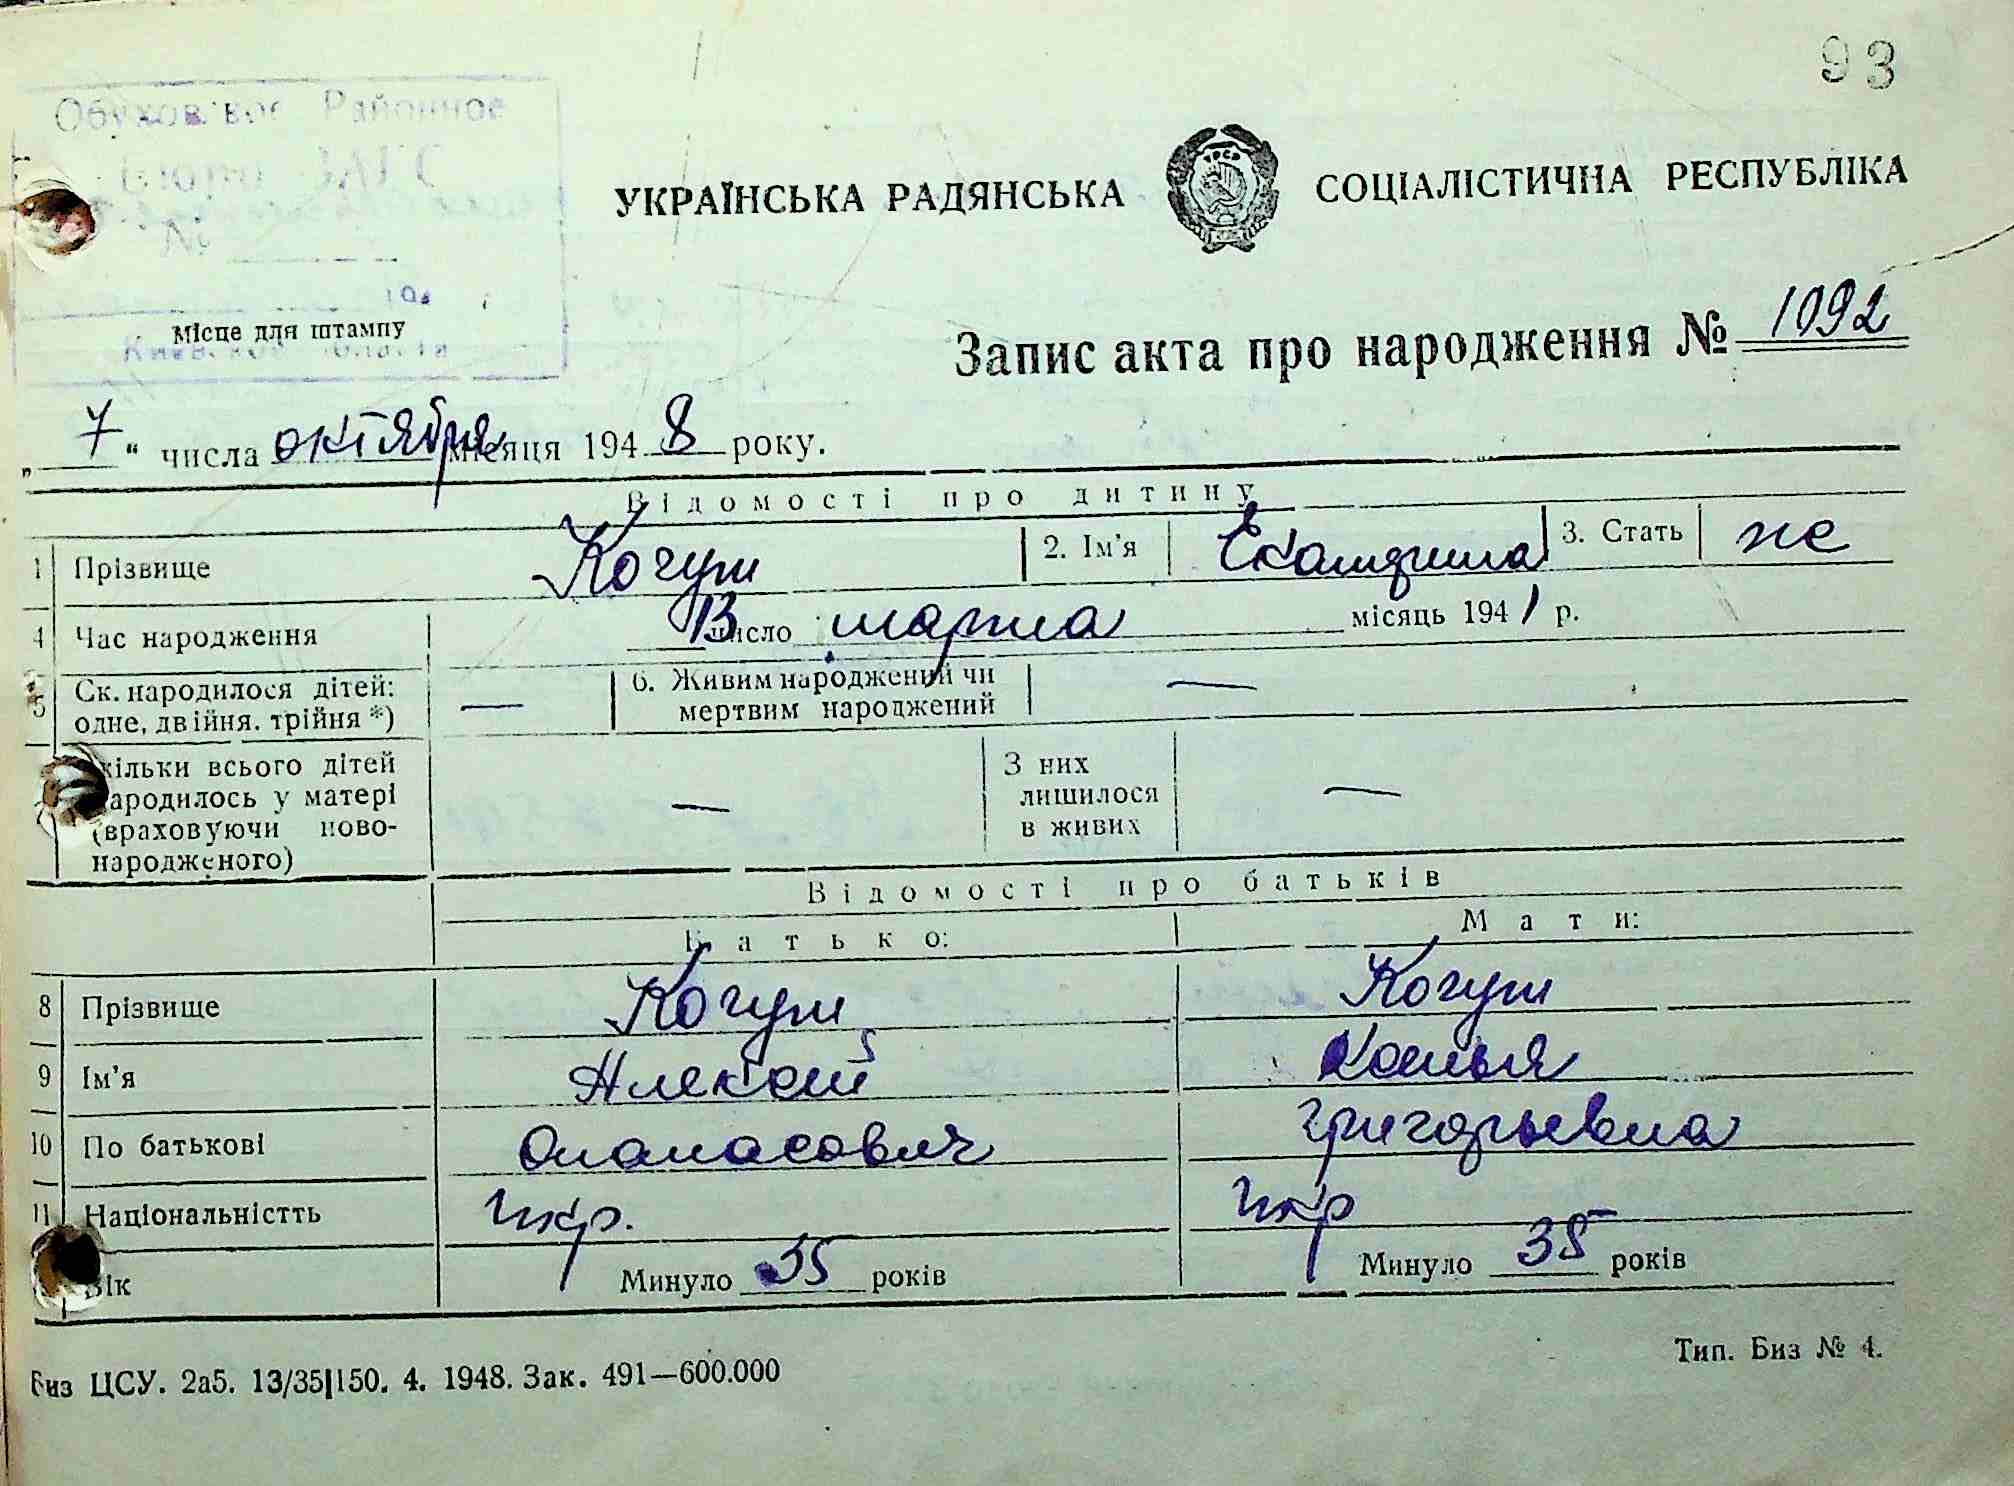 93
Обуховское Районное
Бюро ЗАГС
№
УКРАЇНСЬКА РАДЯНСЬКА СОЦІАЛІСТИЧНА РЕСПУБЛІКА
194
Місце для штампу
Киевской области
Запис акта про народження № 1092
„ 7 “ числа октября місяця 1948 року.
Відомості про дитину
1 Прізвище Когут 2. Ім'я Екатерина 3. Стать ж
4 Час народження 13 число марта місяць 1941 р.
5 Ск. народилося дітей: одне, двійня. трійня *) — 6. Живим народжений чи мертвим народжений —
кільки всього дітей народилось у матері (враховуючи ново-народженого) — З них лишилося в живих —
Відомості про батьків
Батько: Мати:
8 Прізвище Когут Когут
9 Ім'я Алексей
10 По батькові Опанасович Григорьевна
11 Національністть Укр. Укр
Вік Минуло 35 років Минуло 35 років
Биз ЦСУ. 2аб. 13/35|150. 4. 1948. Зак. 491—600.000 Тип. Биз № 4.